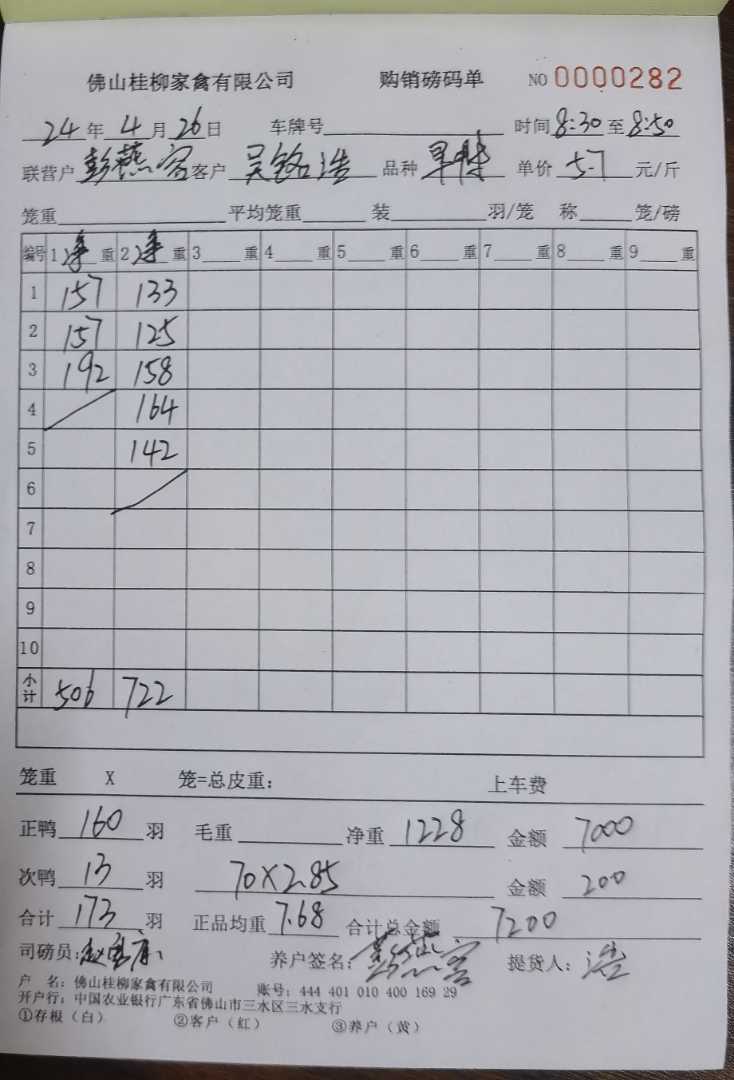 佛山桂柳家禽有限公司 购销磅码单 NO 0000282
24年4月26日 车牌号 时间8:30至8:50
联营户 彭燕容 客户 吴铭浩 品种 单价 5.7 元/斤
笼重 平均笼重 装 羽/笼 称 笼/磅
编号 1净重 2净重 3 重 4 重 5 重 6 重 7 重 8 重 9 重
1 157 133
2 157 125
3 192 158
4 164
5 142
6
7
8
9
10
小计 506 722
笼重 X 笼=总皮重: 上车费
正鸭 160 羽 毛重 净重 1228 金额 7000
次鸭 13 羽 70X2.85 金额 200
合计 173 羽 正品均重 7.68 合计总金额 7200
司磅员: 养户签名: 彭燕容 提货人: 浩
户 名: 佛山桂柳家禽有限公司 账号: 444 401 010 400 169 29
开户行: 中国农业银行广东省佛山市三水区三水支行
①存根（白） ②客户（红） ③养户（黄）